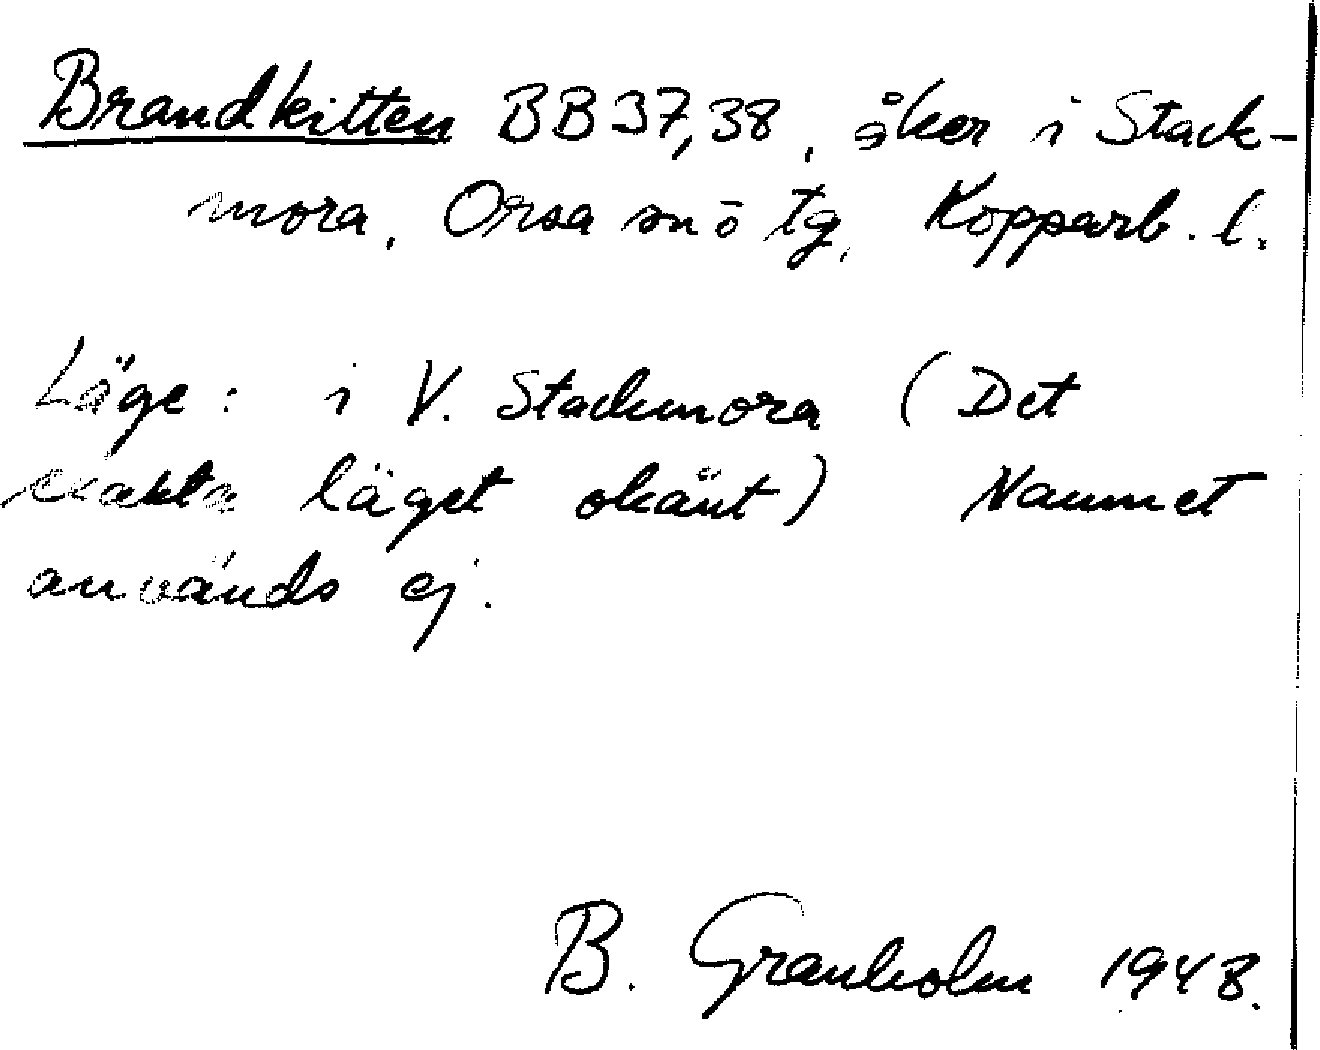 Brandkitten BB37,38, åker i Stack-
mora, Orsa sn ö tg, Kopparb. l.
Läge: i V. Stackmora (Det
exakta läget okänt) Namnet
används ej.
B. Granholm 1948.